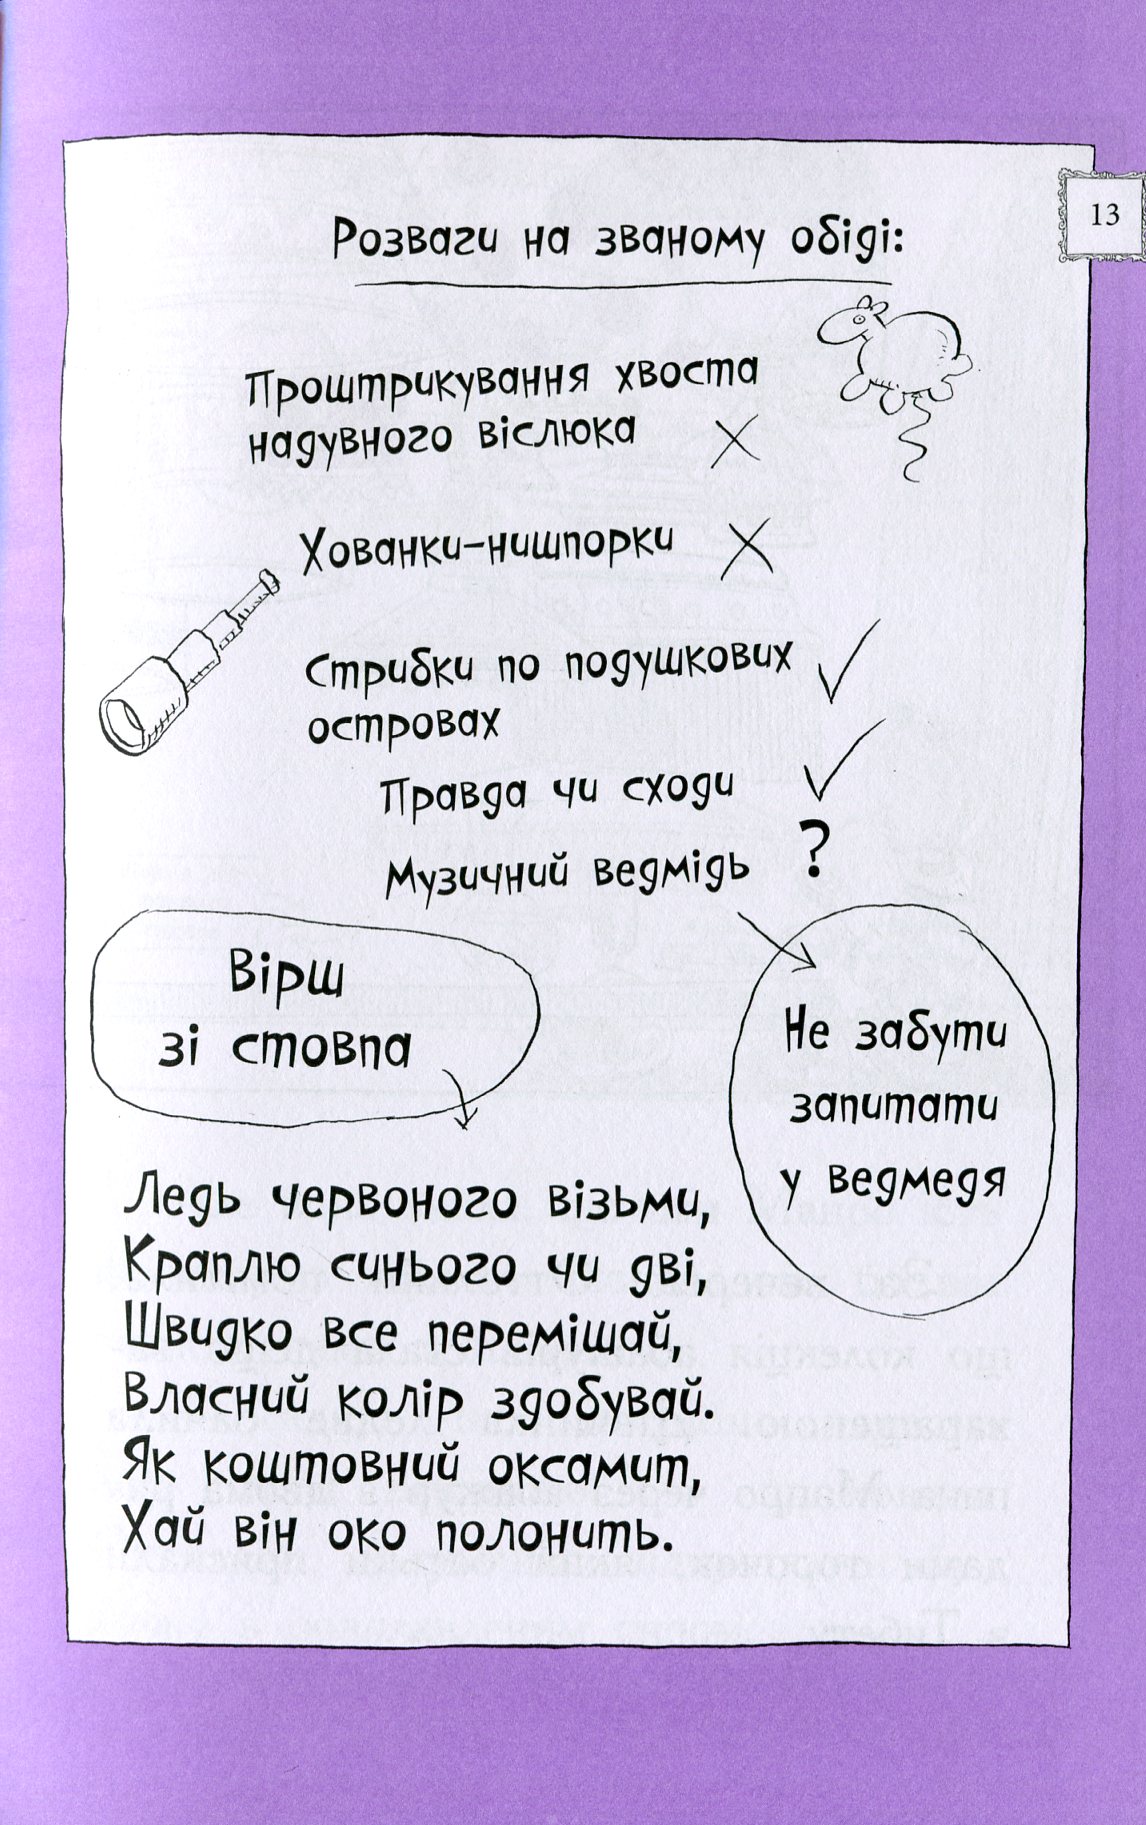 13
Розваги на званому обіді:
Проштрикування хвоста
надувного віслюка
Хованки-нишпорки
Стрибки по подушкових
островах
Правда чи сходи
Музичний ведмідь ?
Вірш
зі стовпа
Не забути
запитати
у ведмедя
Ледь червоного візьми,
Краплю синього чи дві,
Швидко все перемішай,
Власний колір здобувай.
Як коштовний оксамит,
Хай він око полонить.